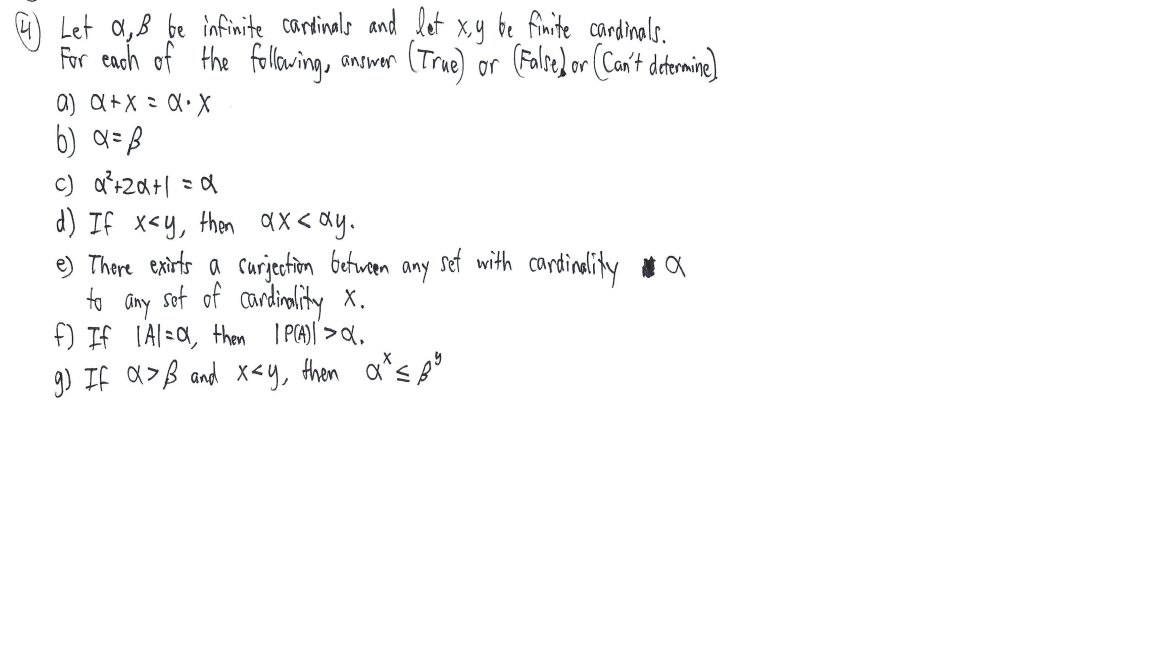 ④ Let α,β be infinite cardinals and let x,y be finite cardinals.
For each of the following, answer (True) or (False) or (Can't determine)
a) α+x = α·x
b) α=β
c) α²+2α+1 = α
d) If x<y, then αx < αy.
e) There exists a surjection between any set with cardinality α
to any set of cardinality x.
f) If |A|=α, then |P(A)|>α.
g) If α>β and x<y, then αˣ ≤ βʸ